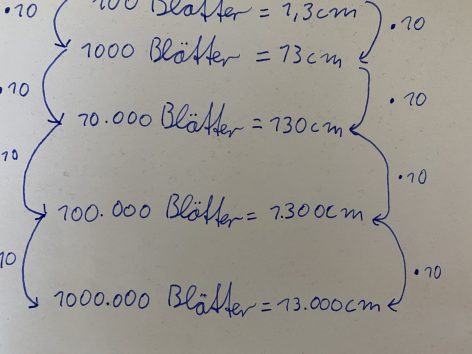 ·10 100 Blätter = 1,3cm ·10
1000 Blätter = 13cm
·10 10.000 Blätter = 130cm ·10
10 100.000 Blätter = 1.300cm ·10
10 1000.000 Blätter = 13.000cm ·10